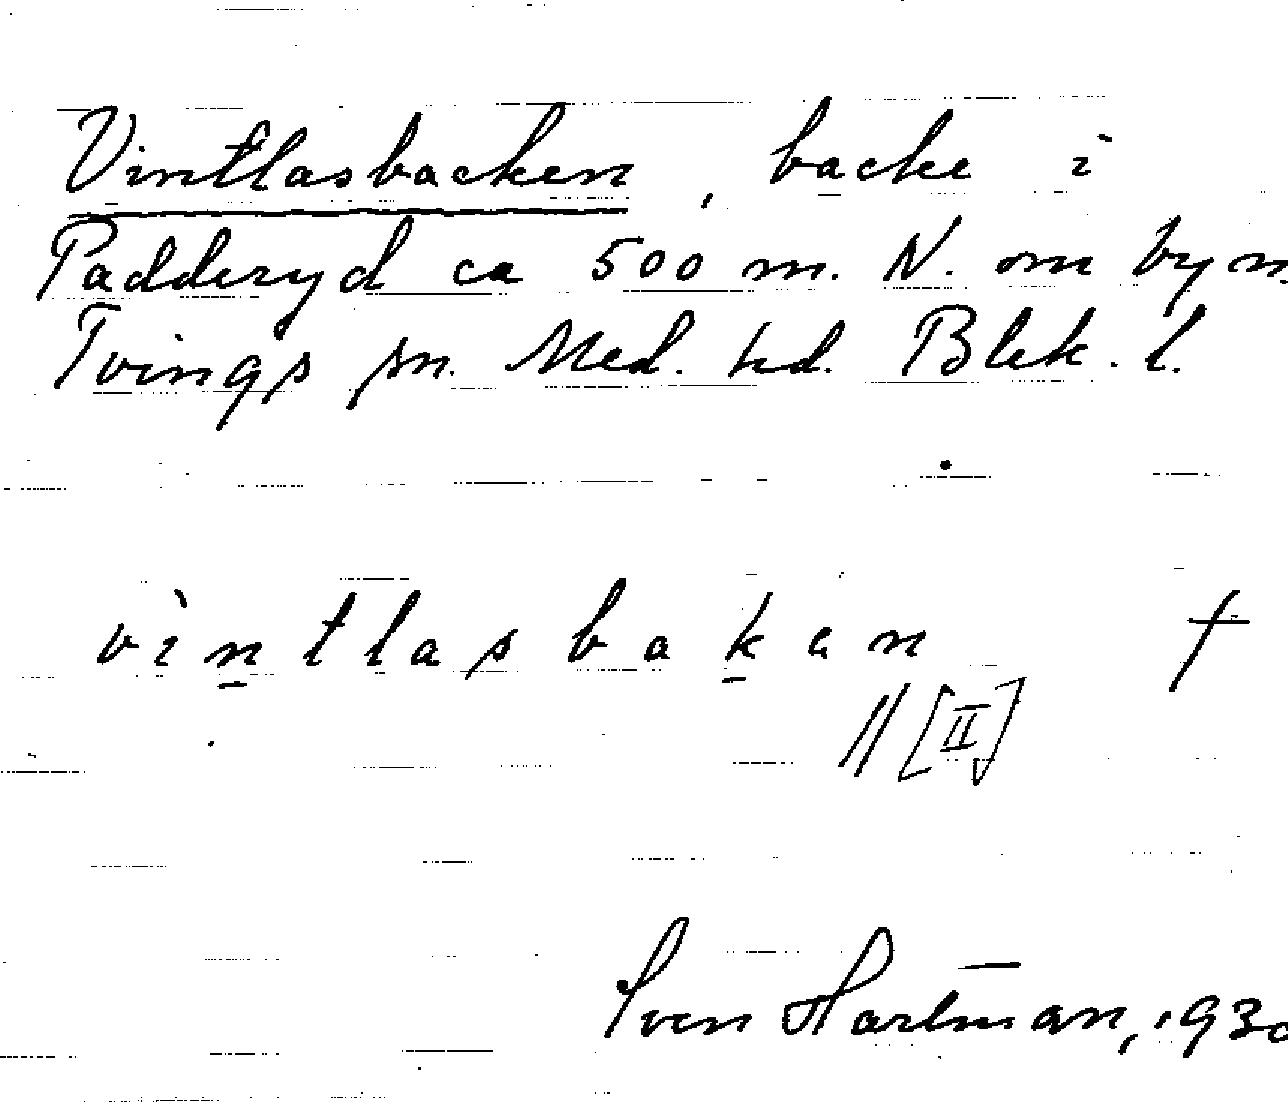 Vintlasbacken, backe i
Padderyd ca 500 m. N. om byn
Tvings sn. Med. hd. Blek. l.
vìntlasbakan †
11 [II]
Sven Hartman, 1930